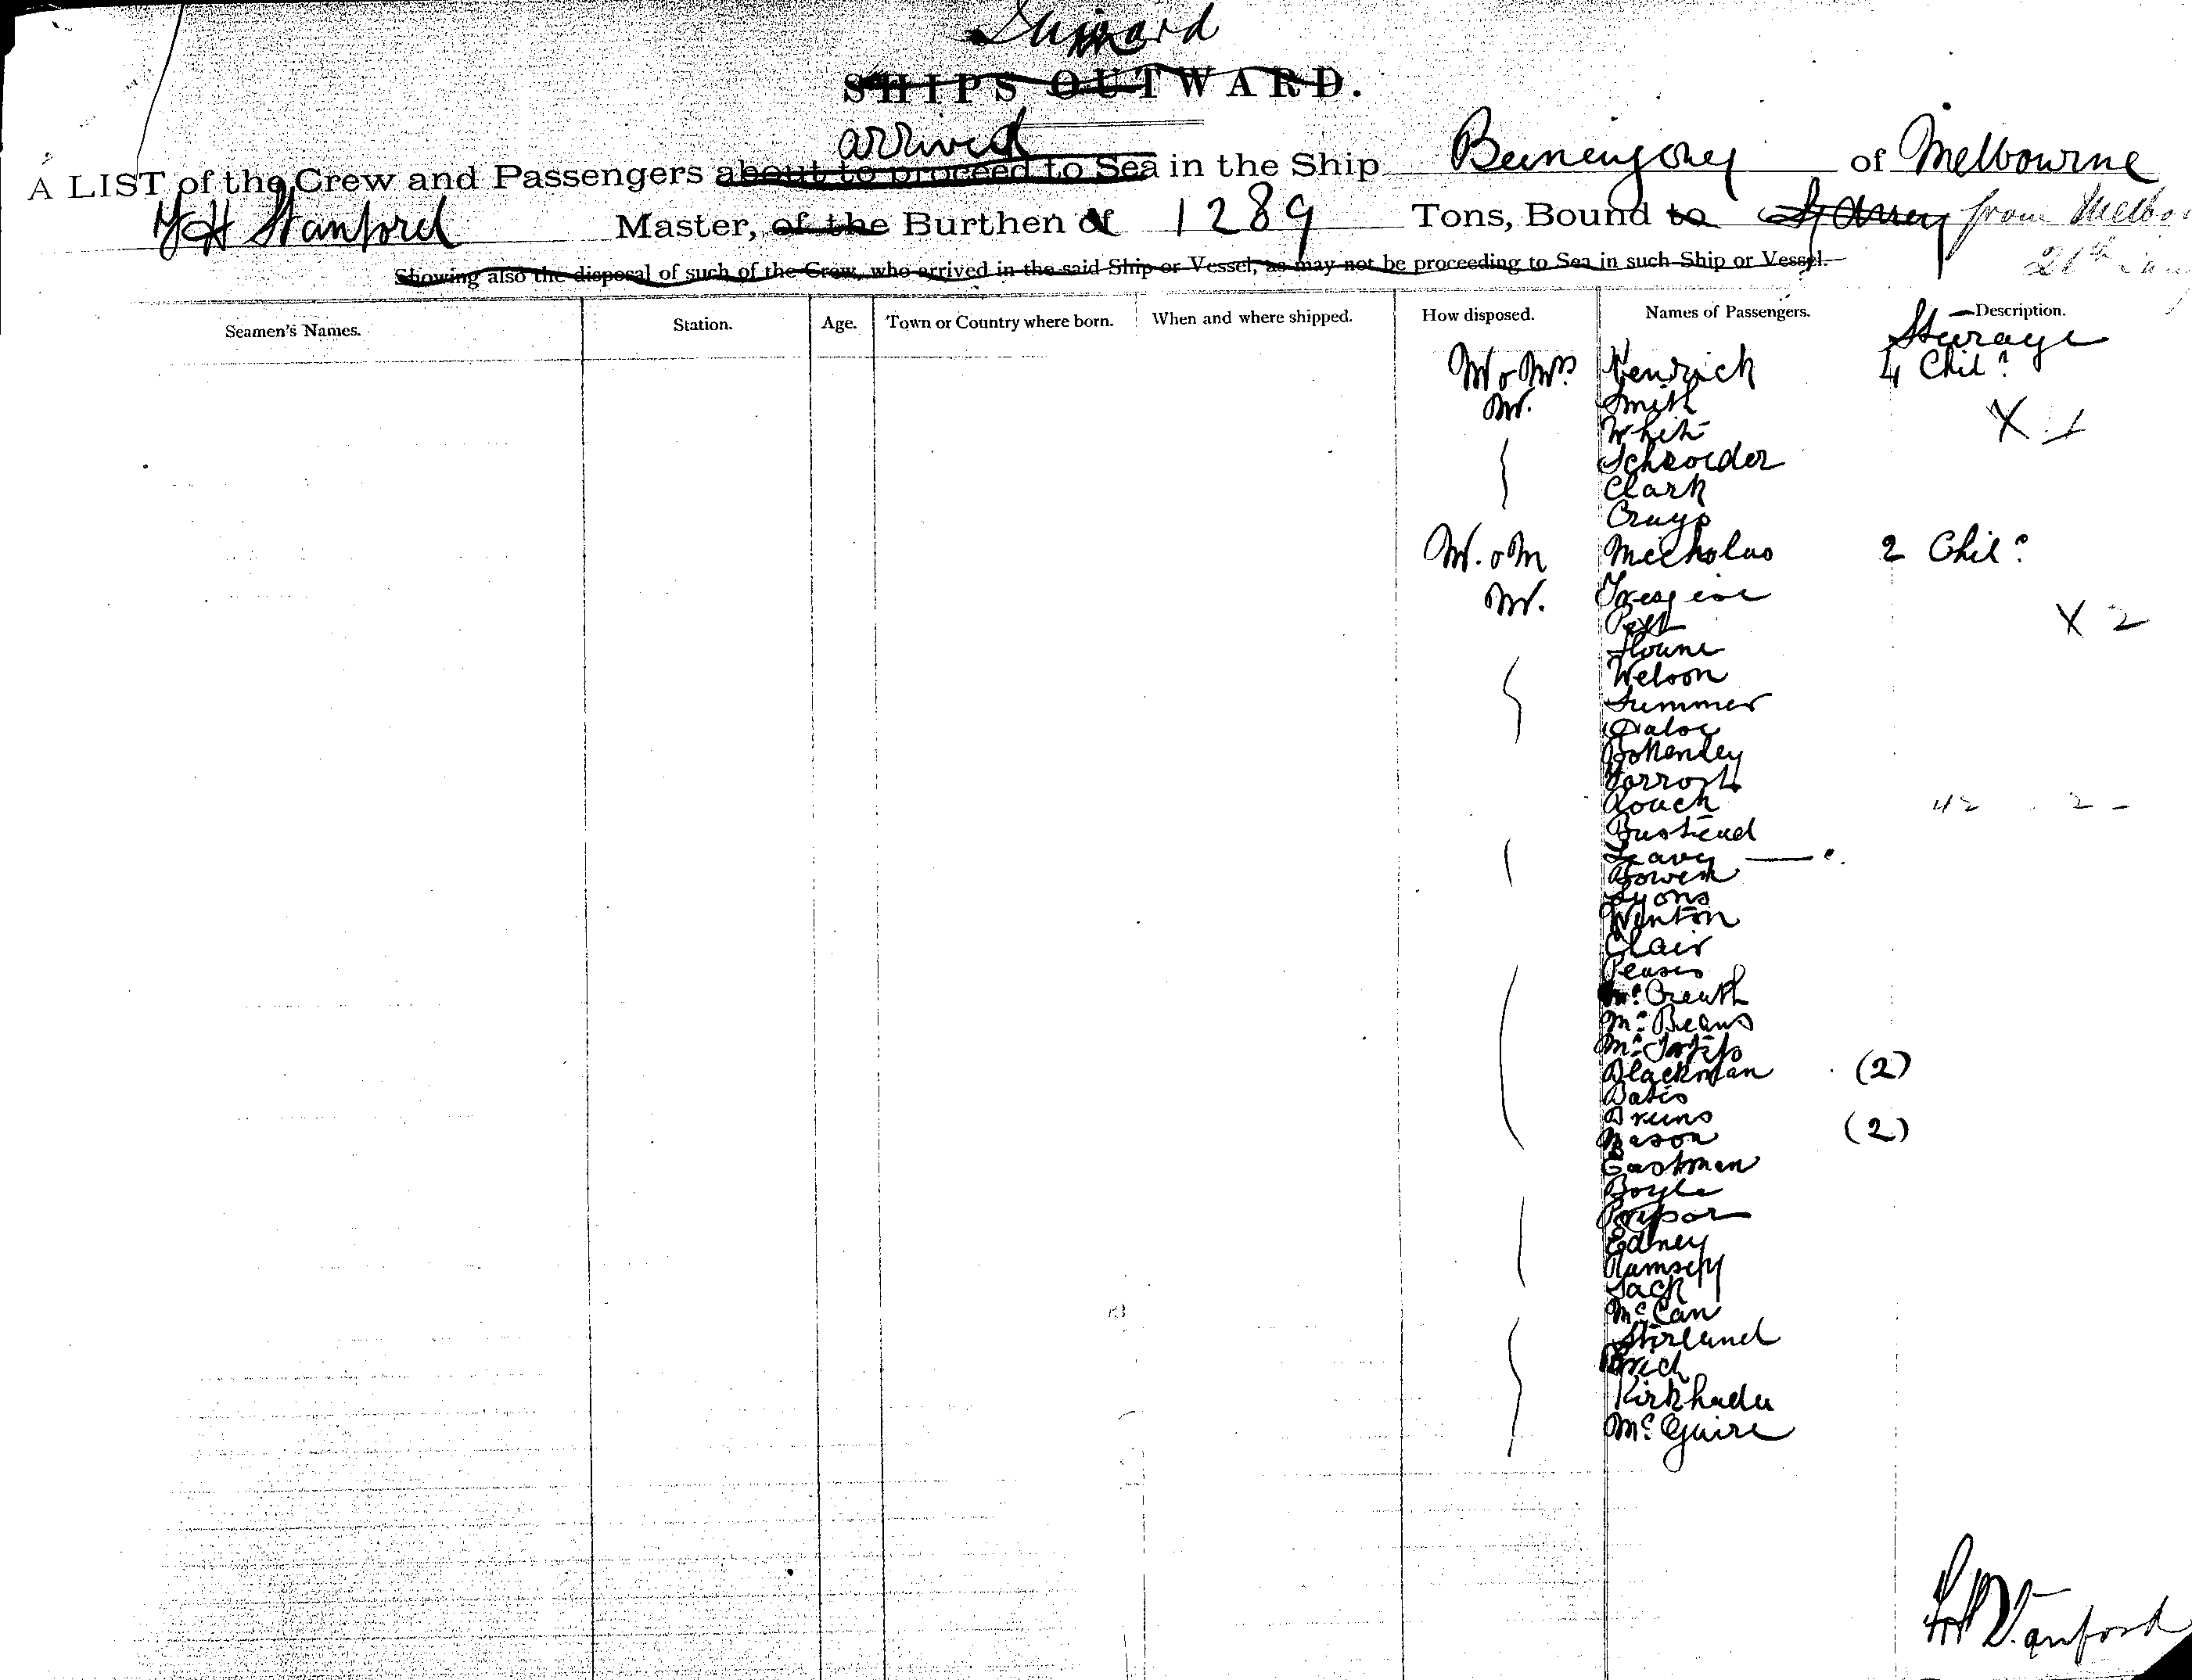 Inward
SHIPS OUTWARD.
arrived
A LIST of the Crew and Passengers about to proceed to Sea in the Ship Buninyong of Melbourne
H Stanford Master, of the Burthen of 1289 Tons, Bound to Sydney from Melbo
21th
Showing also the disposal of such of the Crew, who arrived in the said Ship or Vessel, as may not be proceeding to Sea in such Ship or Vessel.
Seamen's Names. Station. Age. Town or Country where born. When and where shipped. How disposed. Names of Passengers. Description.
Steerage
M & Mrs Kenrick 4 Chiln
Mr. Smith
White X 1
Schroider
Clark
M. & M 2 Chiln
Mr.
X 2
Welson
Summer
Bottenley
Roach 42 2 -
Bustead
Leavy
Bowen
Lyons
Winton
Clair
McCreath
McBeans
Blackman (2)
Bates
Mason (2)
Eastman
Boyle
Edney
Ramsey
Jack
McCan
Stirland
Kirkhade
McGuire
H Stanford